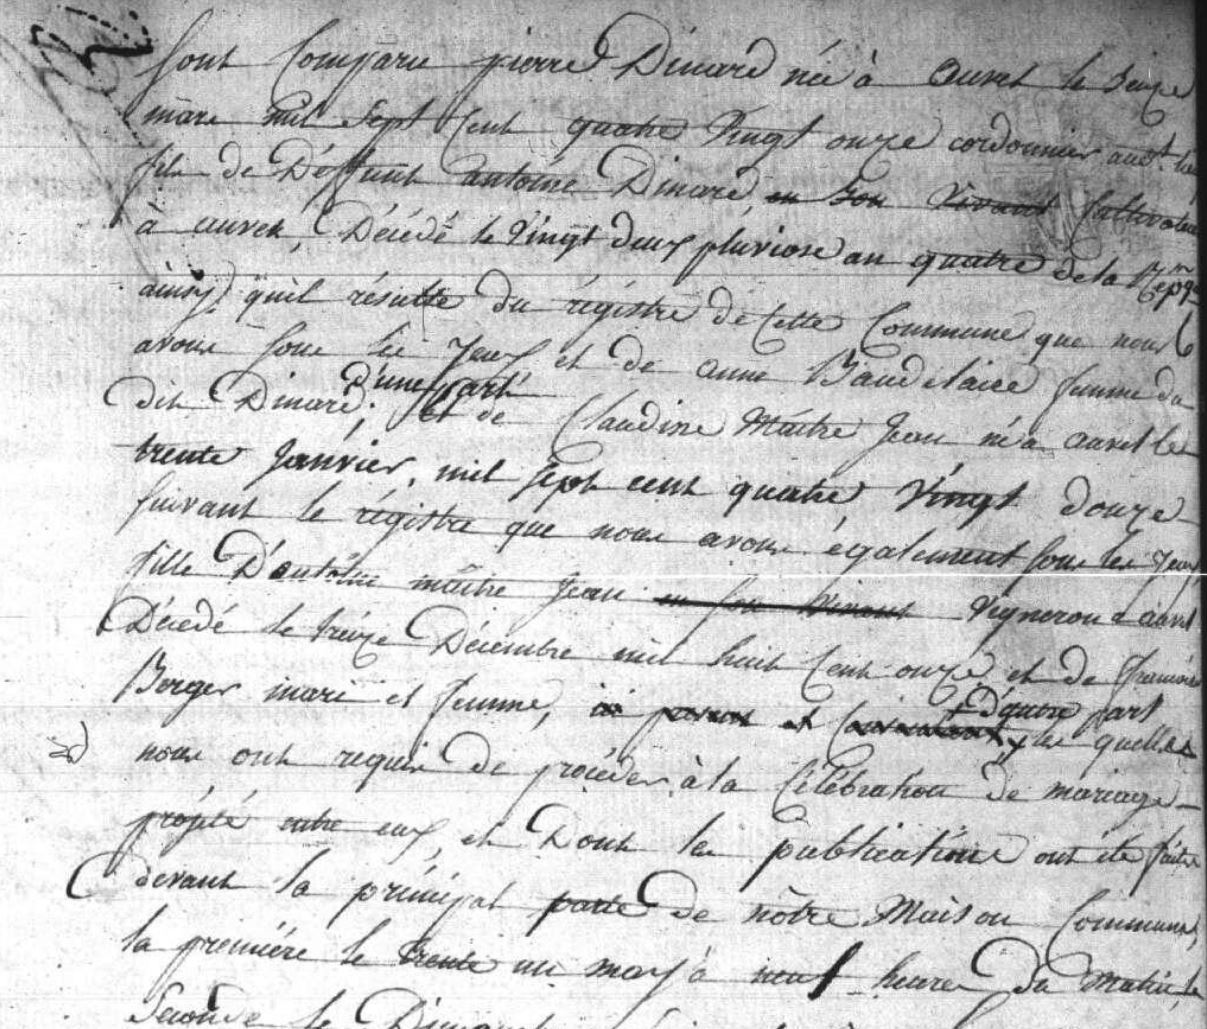 sont Comparu pierre Dinard née à auret le seize
mars mil Sept Cent quatre Vingt onze cordonnier aud.t lieu
fils de Déffunt antoine Dinard en Son vivant Cultivateur
à auren, Décédé le Vingt deux pluviose an quatre de la
ainsy quil résulte du régistre de Cette Commune que nous
avons sous les yeux et de anne Baudelaire femme du
dit Dinard, d'une part et de Claudine Maître Jean né a auret le
trente Janvier, mil sept cent quatre Vingt douze
suivant le régistre que nous avons également sous les yeux
fille D'antoine maître Jean en son vivant Vigneron a auret
Décedé le treize Décembre mil huit Cent onze et de
Berger mari et femme, D'autre part les quelles
nous ont requis de proceder à la Célébration de mariage
projeté entre eux, et Dont les publications ont été faites
devant la principal porte de nôtre Maison Commune,
la première le trente un may à neuf heures du Matin, la
Seconde le Dimanche